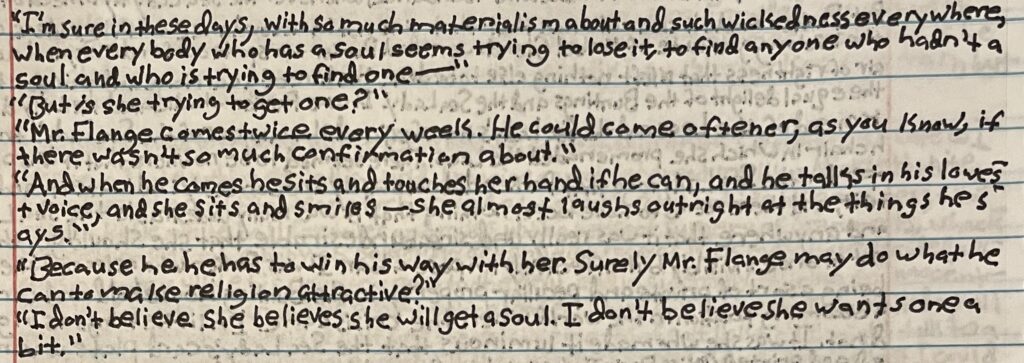 "I'm sure in these days, with so much materialism about and such wickedness everywhere,
when every body who has a soul seems trying to lose it, to find anyone who hadn't a
soul and who is trying to find one—"
"But is she trying to get one?"
"Mr. Flange comes twice every week. He could come oftener, as you know, if
there wasn't so much confirmation about."
"And when he comes he sits and touches her hand if he can, and he talks in his lowes
t voice, and she sits and smiles—she almost laughs outright at the things he s
ays."
"Because he he has to win his way with her. Surely Mr. Flange may do what he
can to make religion attractive?"
"I don't believe she believes she will get a soul. I don't believe she wants one a
bit."